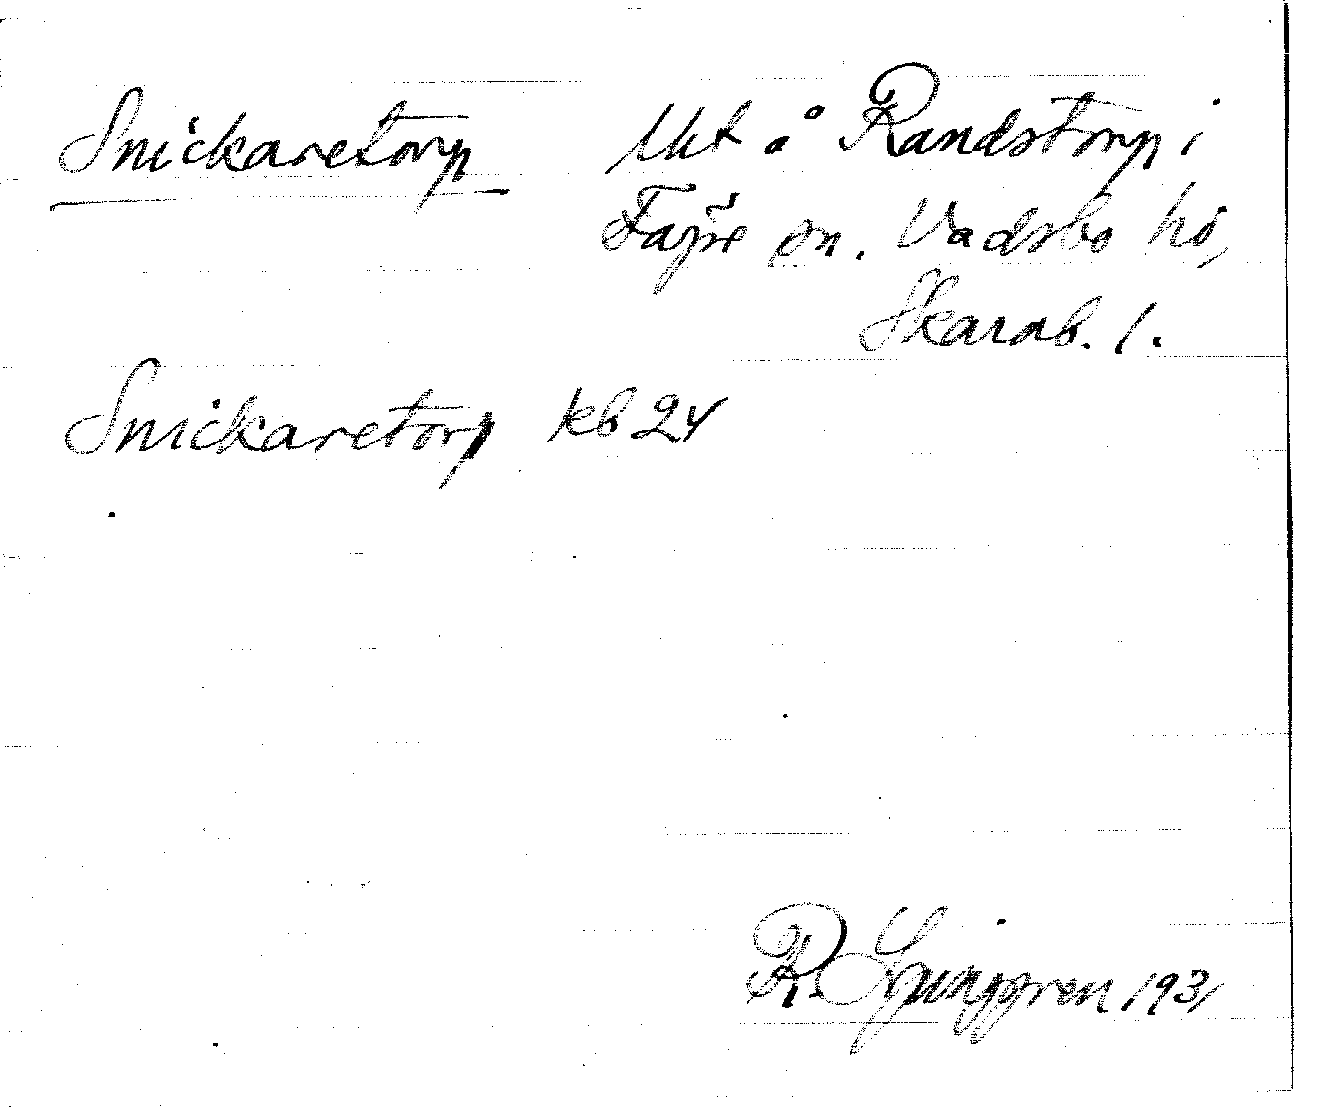 Snickaretorp Utt å Randstorp i
Fägre sn. Vadsbo hd,
Skarab. l.
Snickaretorp kb 24
R. Ljunggren 1931